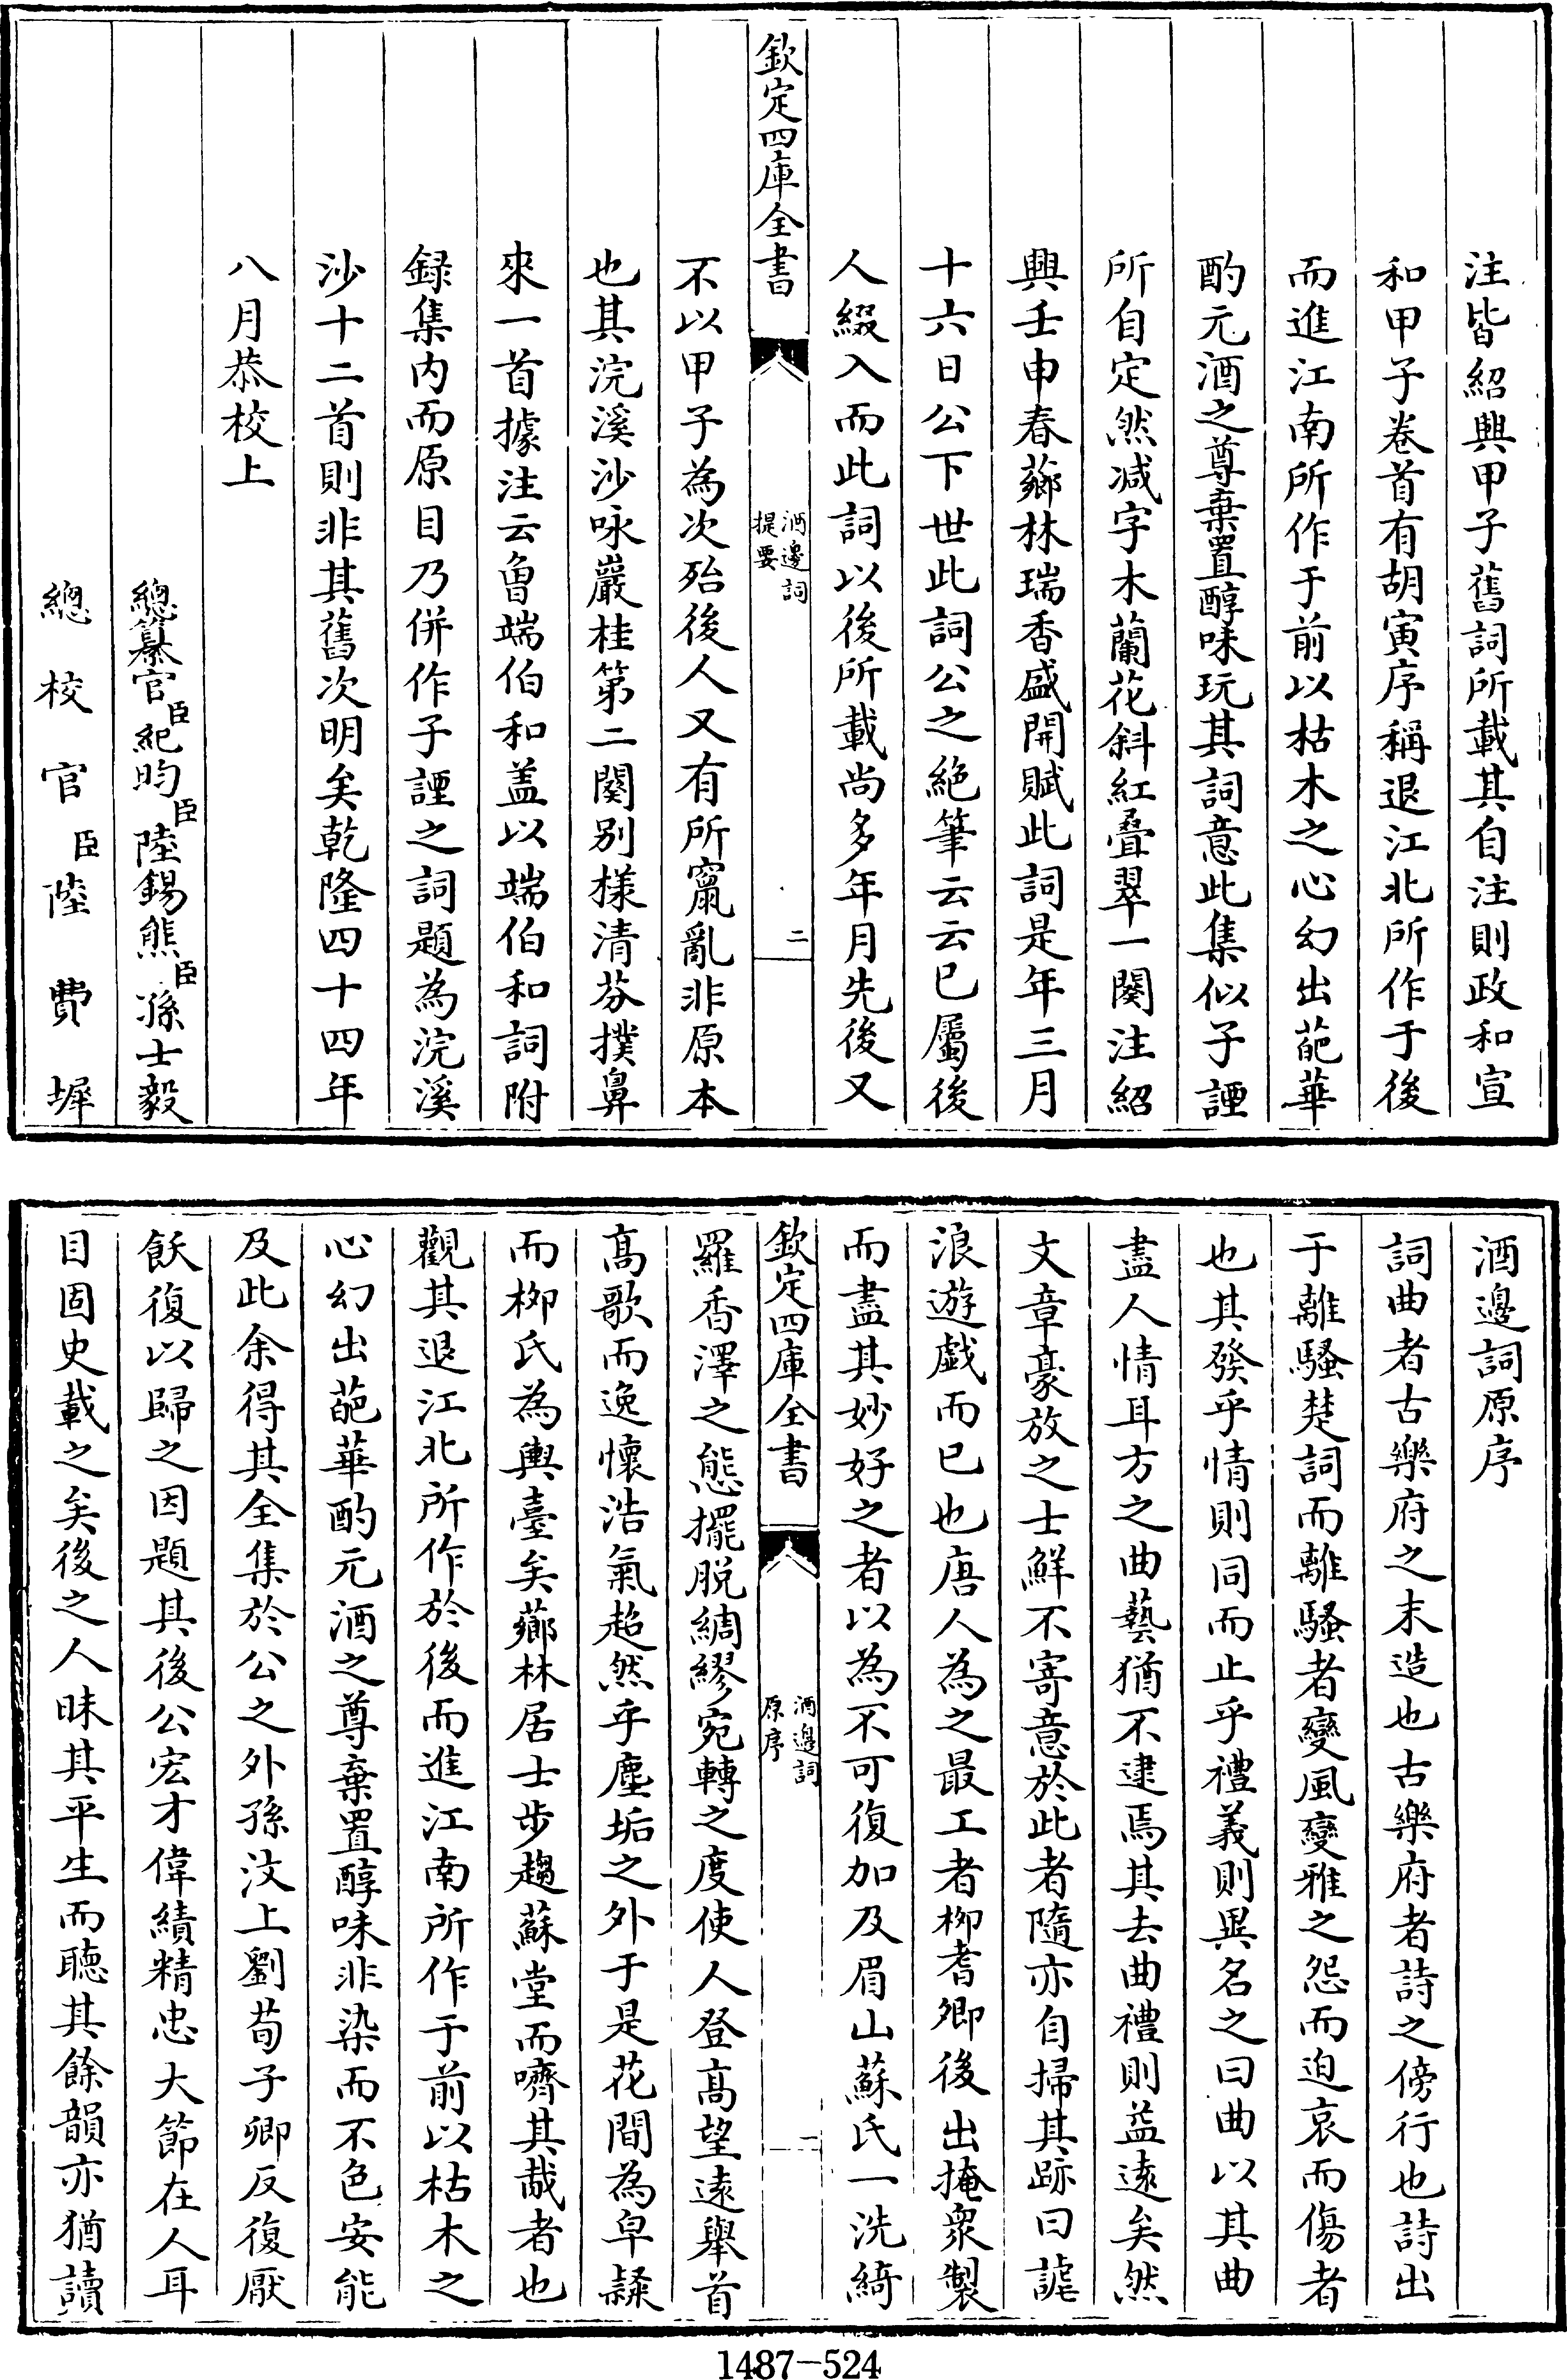 注皆紹興甲子舊詞所載其自注則政和宣
和甲子卷首有胡寅序稱退江北所作于後
而進江南所作于前以枯木之心幻出葩華
酌元酒之尊棄置醇味玩其詞意此集似子諲
所自定然减字木蘭花斜紅疊翠一闋注紹
興壬申春薌林瑞香盛開賦此詞是年三月
十六日公下世此詞公之絶筆云云已屬後
人綴入而此詞以後所載尚多年月先後又
欽定四庫全書
酒邊詞
提要
二
不以甲子為次殆後人又有所竄亂非原本
也其浣溪沙咏巖桂第二闋别様清芬撲鼻
來一首據注云曾端伯和盖以端伯和詞附
録集内而原目乃併作子諲之詞題為浣溪
沙十二首則非其舊次明矣乾隆四十四年
八月恭校上
總纂官臣紀昀臣陸錫熊臣孫士毅
總校官臣陸費墀
酒邊詞原序
詞曲者古樂府之末造也古樂府者詩之傍行也詩出
于離騷楚詞而離騷者變風變雅之怨而迫哀而傷者
也其發乎情則同而止乎禮義則異名之曰曲以其曲
盡人情耳方之曲藝猶不逮焉其去曲禮則益逺矣然
文章豪放之士鮮不寄意於此者隨亦自掃其跡曰謔
浪遊戱而已也唐人為之最工者柳耆卿後出掩衆製
而盡其妙好之者以為不可復加及眉山蘇氏一洗綺
欽定四庫全書
酒邊詞
原序
一
羅香澤之態擺脱綢繆宛轉之度使人登髙望逺舉首
髙歌而逸懷浩氣超然乎塵垢之外于是花間為皁隸
而柳氏為輿臺矣薌林居士步趨蘇堂而嚌其胾者也
觀其退江北所作於後而進江南所作于前以枯木之
心幻出葩華酌元酒之尊棄置醇味非染而不色安能
及此余得其全集於公之外孫汶上劉荀子卿反復厭
飫復以歸之因題其後公宏才偉績精忠大節在人耳
目固史載之矣後之人昧其平生而聽其餘韻亦猶讀
1487-524